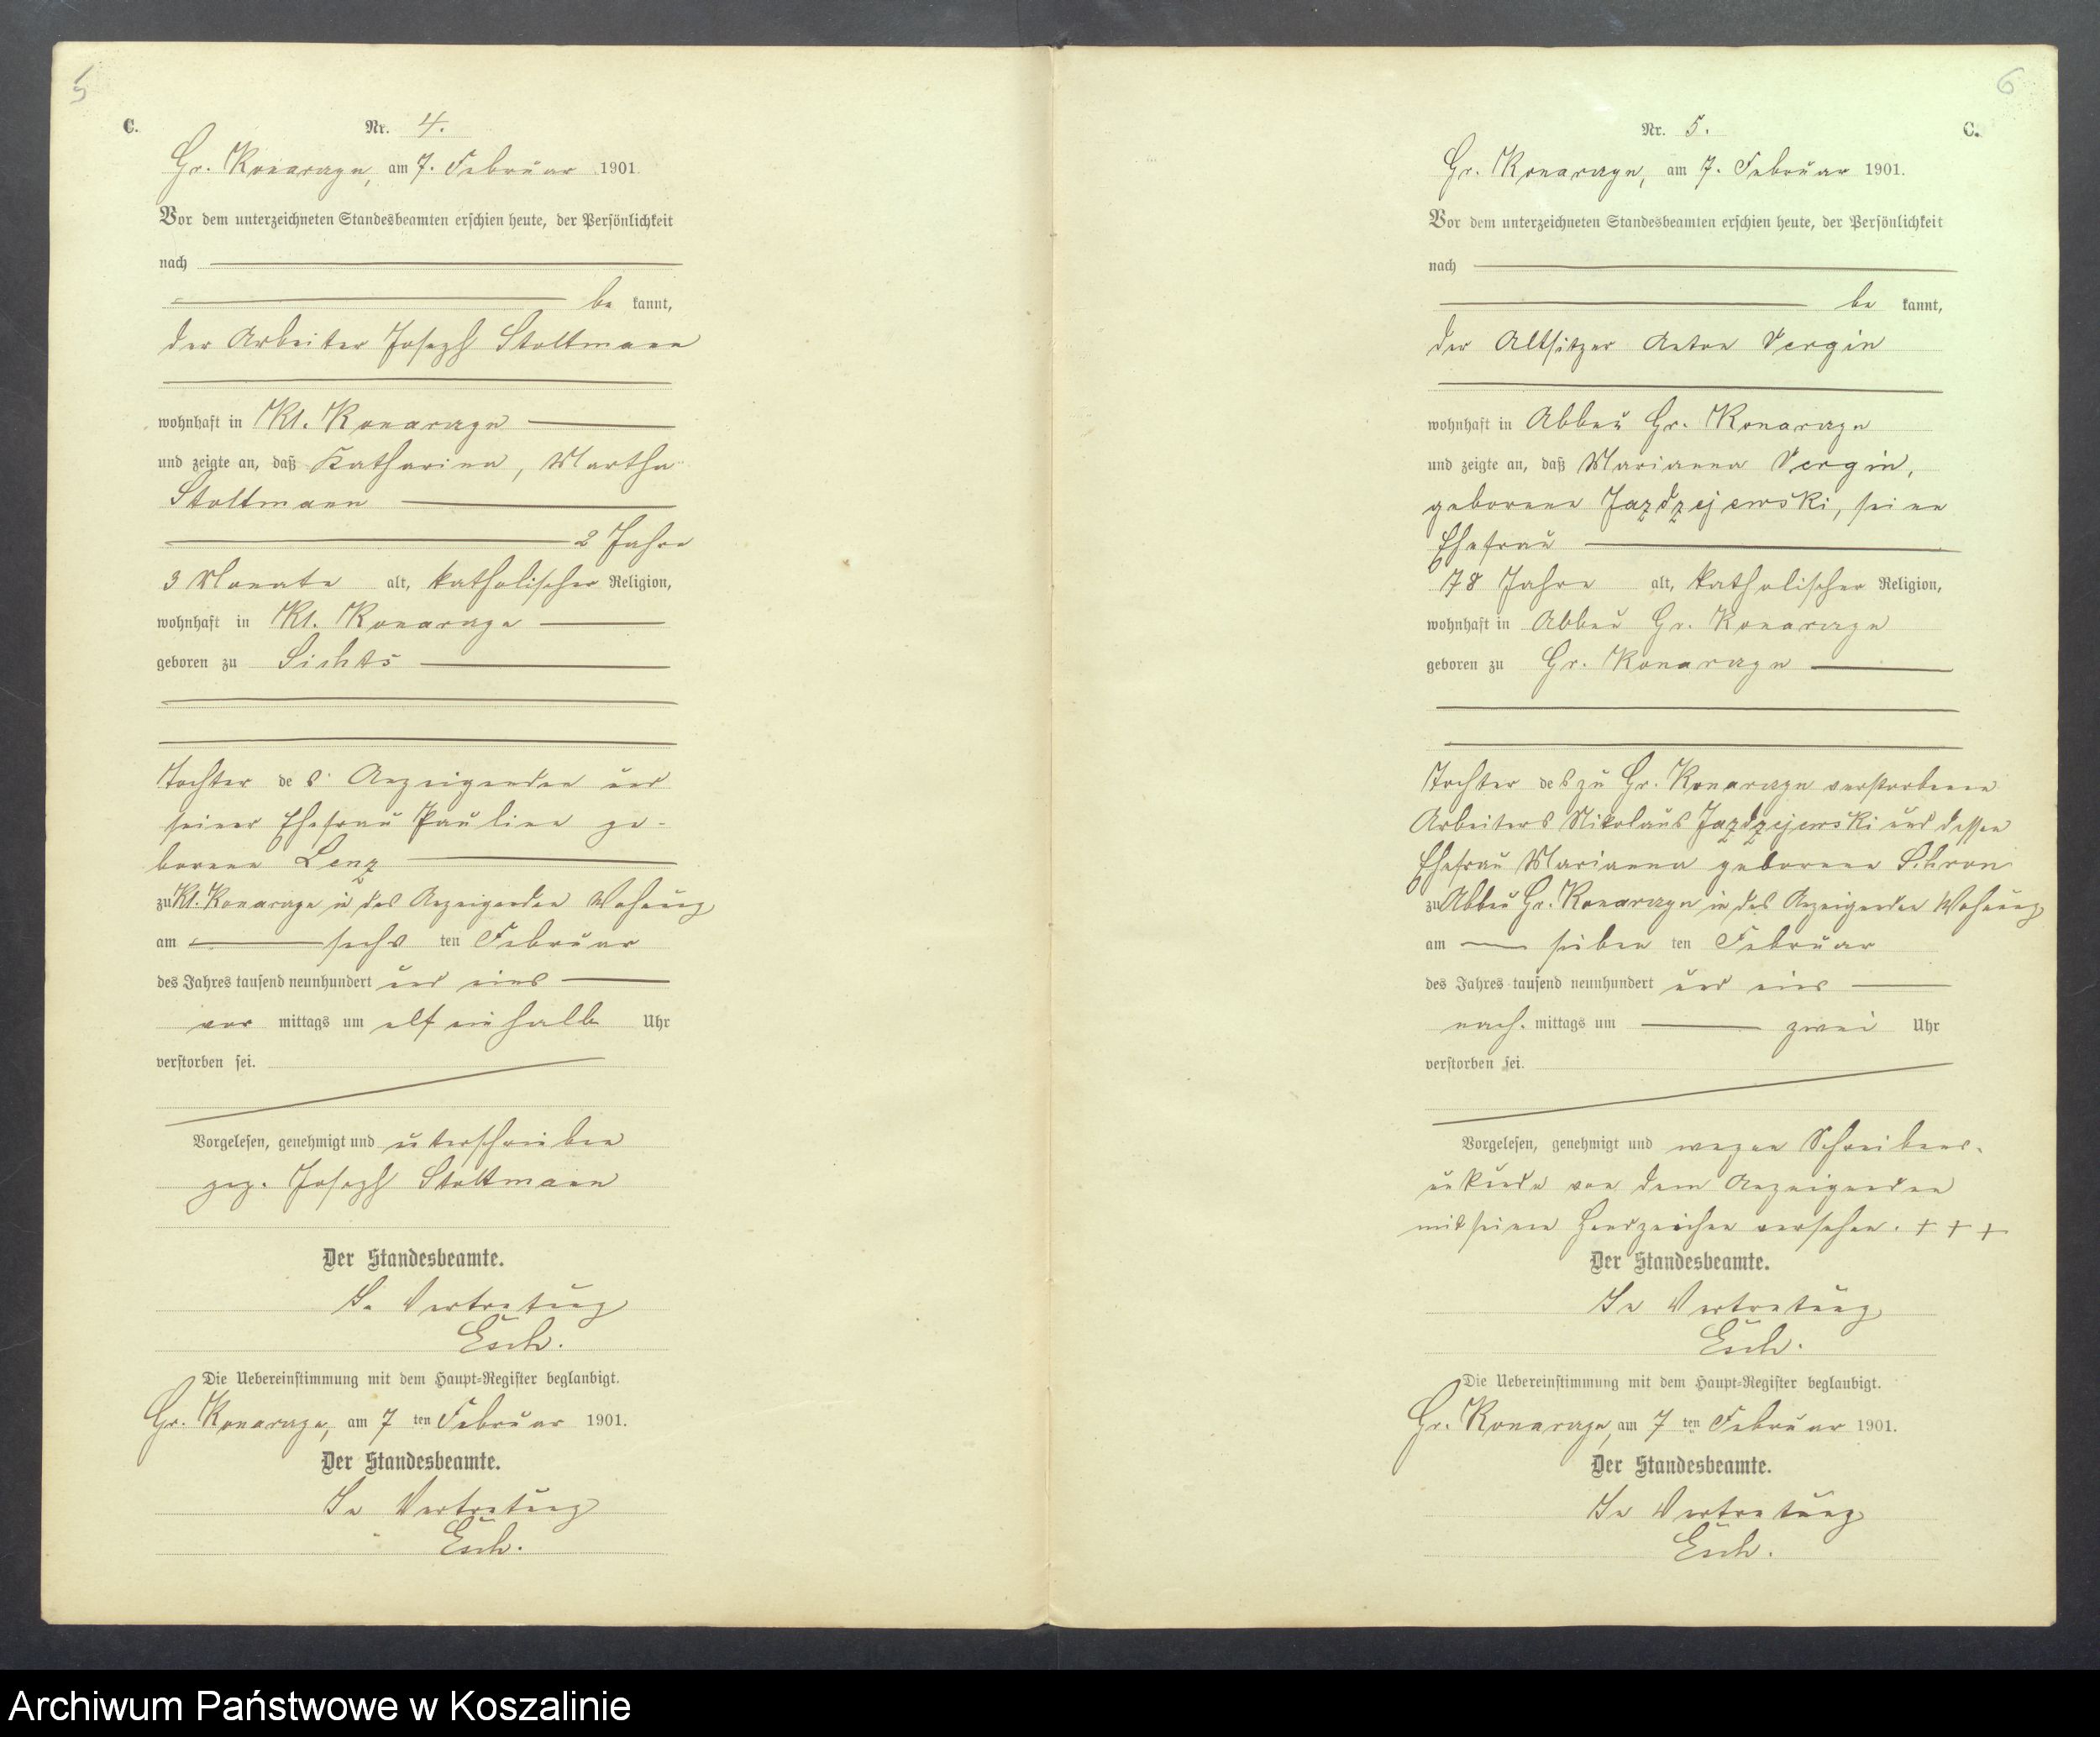 5
C.
Nr. 4.
Gr. Konarczyn, am 7. Februar 1901.
Vor dem unterzeichneten Standesbeamten erschien heute, der Persönlichkeit
nach
be kannt,
der Arbeiter Joseph Stoltmann
wohnhaft in Kl. Konarczyn
und zeigte an, daß Katharina, Martha
Stoltmann
2 Jahre
3 Monate alt, katholischer Religion,
wohnhaft in Kl. Konarczyn
geboren zu Sichts
Tochter des Anzeigenden und
seiner Ehefrau Pauline ge-
borene Lenz
zu Kl. Konarczyn in des Anzeigenden Wohnung
am sechs ten Februar
des Jahres tausend neunhundert und eins
vor mittags um elf ein halb Uhr
verstorben sei.
Vorgelesen, genehmigt und unterschrieben
gez. Joseph Stoltmann
Der Standesbeamte.
In Vertretung
Esch.
Die Uebereinstimmung mit dem Haupt-Register beglaubigt.
Gr. Konarczyn, am 7 ten Februar 1901.
Der Standesbeamte.
In Vertretung
Esch.
6
Nr. 5.
C.
Gr. Konarczyn, am 7. Februar 1901.
Vor dem unterzeichneten Standesbeamten erschien heute, der Persönlichkeit
nach
be kannt,
der Altsitzer Anton Vergin
wohnhaft in Abbau Gr. Konarczyn
und zeigte an, daß Marianna Vergin,
geborene Jazdzejewski, seine
Ehefrau
78 Jahre alt, katholischer Religion,
wohnhaft in Abbau Gr. Konarczyn
geboren zu Gr. Konarczyn
Tochter des zu Gr. Konarczyn verstorbenen
Arbeiters Nikolaus Jazdzejewski und dessen
Ehefrau Marianna geborene
zu Abbau Gr. Konarczyn in des Anzeigenden Wohnung
am sieben ten Februar
des Jahres tausend neunhundert und eins
nach mittags um zwei Uhr
verstorben sei.
Vorgelesen, genehmigt und wegen Schreibens-
unkunde von dem Anzeigenden
mit seinem Handzeichen versehen. + + +
Der Standesbeamte.
In Vertretung
Esch.
Die Uebereinstimmung mit dem Haupt-Register beglaubigt.
Gr. Konarczyn, am 7 ten Februar 1901.
Der Standesbeamte.
In Vertretung
Esch.
Archiwum Państwowe w Koszalinie